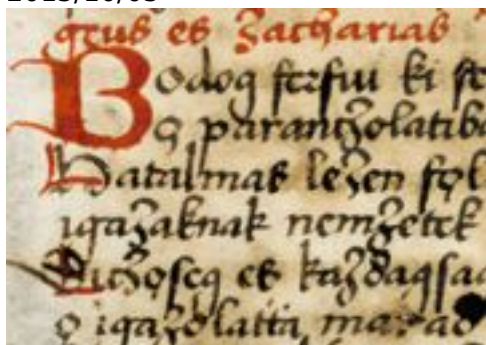 2013/10/03
geus es Zacharias
Bodog ferfiu ki fe
o parančolatiba
Hatalmas leʒen fǫl
igaʒaknak nemʒetek
es kaʒdagsag
o igaʒolatta marad